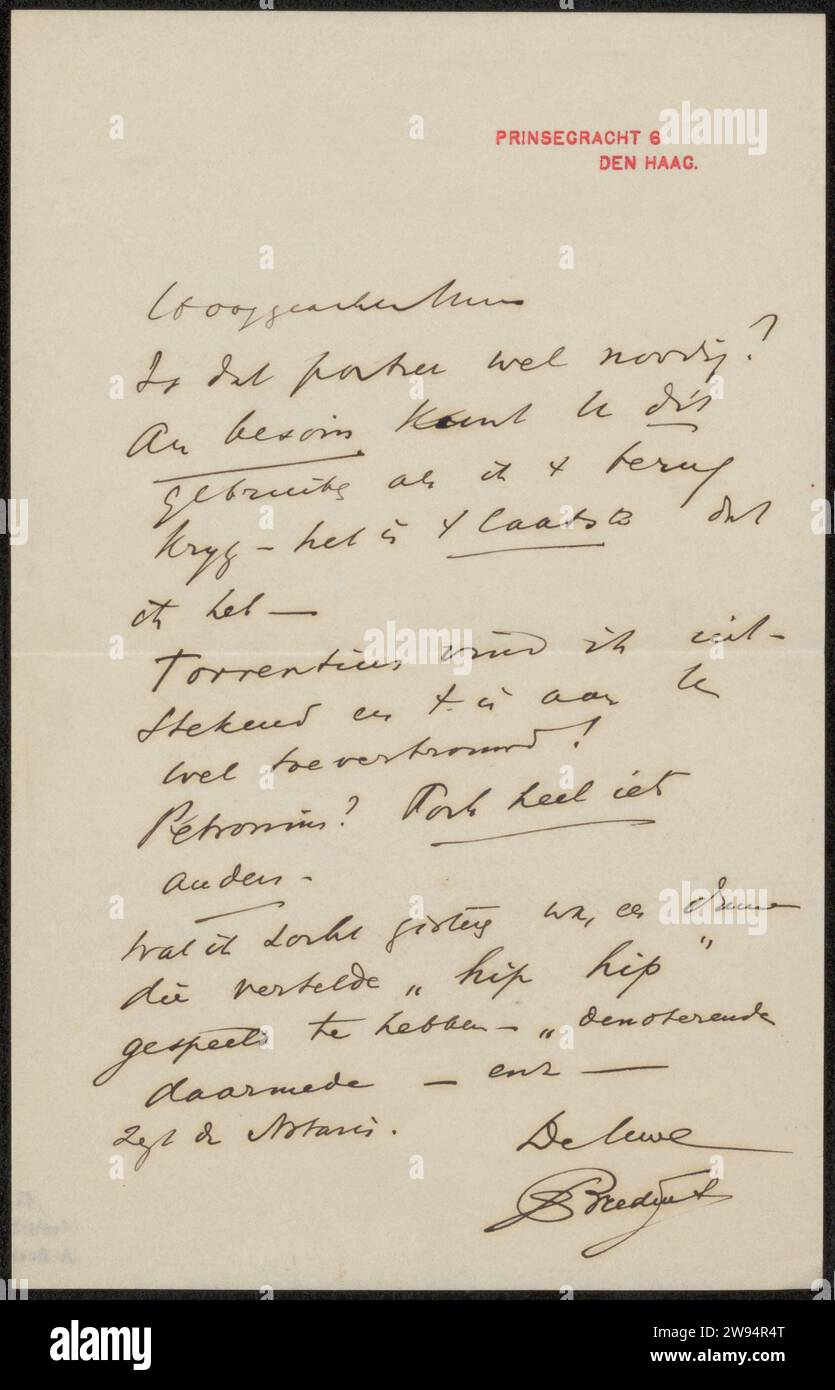 PRINSEGRACHT 6
DEN HAAG.
Hooggeachte
Is dat portret wel noodig?
Au besoin kunt U dit
gebruiken als ik 't terug
kryg – het is 't laatste dat
ik heb —
Torrentius vind ik uit-
stekend en 't is aan U
wel toevertrouwd!
Petronius? Toch heel iets
anders –
Wat ik zocht gisteren was, een dame
die vertelde „ hip hip "
gespeeld te hebben – „ denoterende
daarmede – enz —
zegt de Notaris.
De Uwe
Bredius
alamy
a
Image ID: 2W94R4T
www.alamy.com